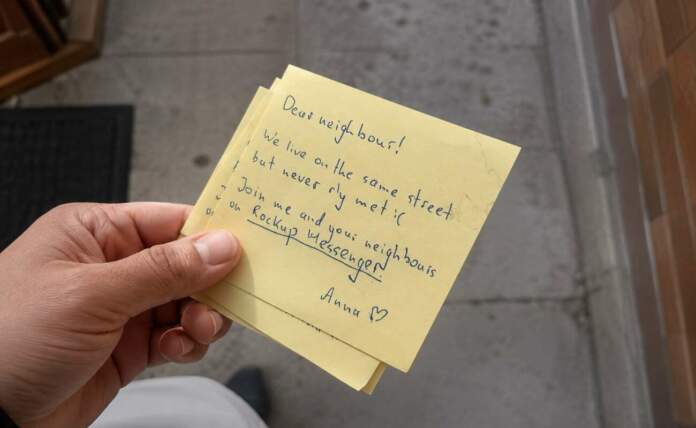 Dear neighbour!
We live on the same street
but never rly met :(
Join me and your neighbours
on Rockup Messenger.
Anna ♡